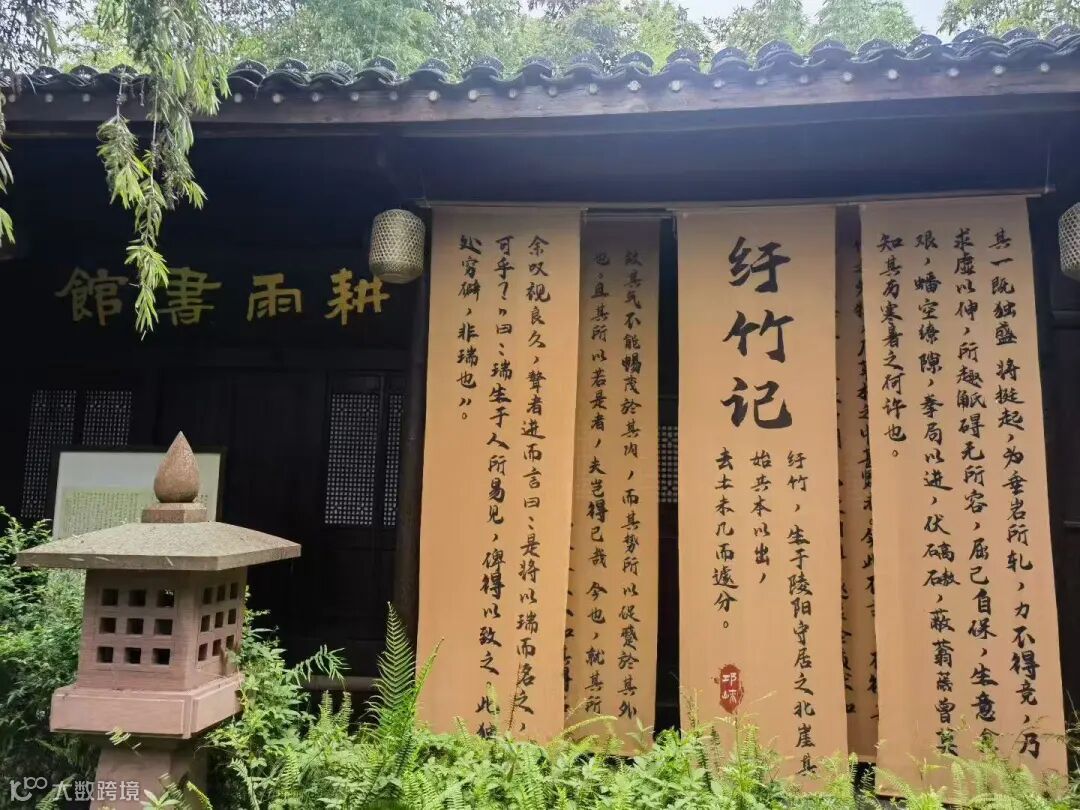 其一既独盛 将挺起，为垂岩所轧，力不得竞，乃
求虚以伸，所趣觝碍无所容，屈己自保，生意愈
艰，蟠空缭隙，拳局以进，伏碻磝，蔽蓊蒋曾莫
知其有寒暑之何许也。
纡竹记
纡竹，生于陵阳守居之北崖其
始共本以出，
去土未几而遽分。
邛崃
故其气不能畅茂於其内，而其势所以促蹙於其外
也，且其所以若是者，夫岂得已哉 今也，就其所
余叹视良久，聱者进而言曰：是将以瑞而名之，
可乎？"曰：瑞生于人所易见，俾得以致之，此犹
处穷僻，非瑞也"。
耕雨書館
大数跨境